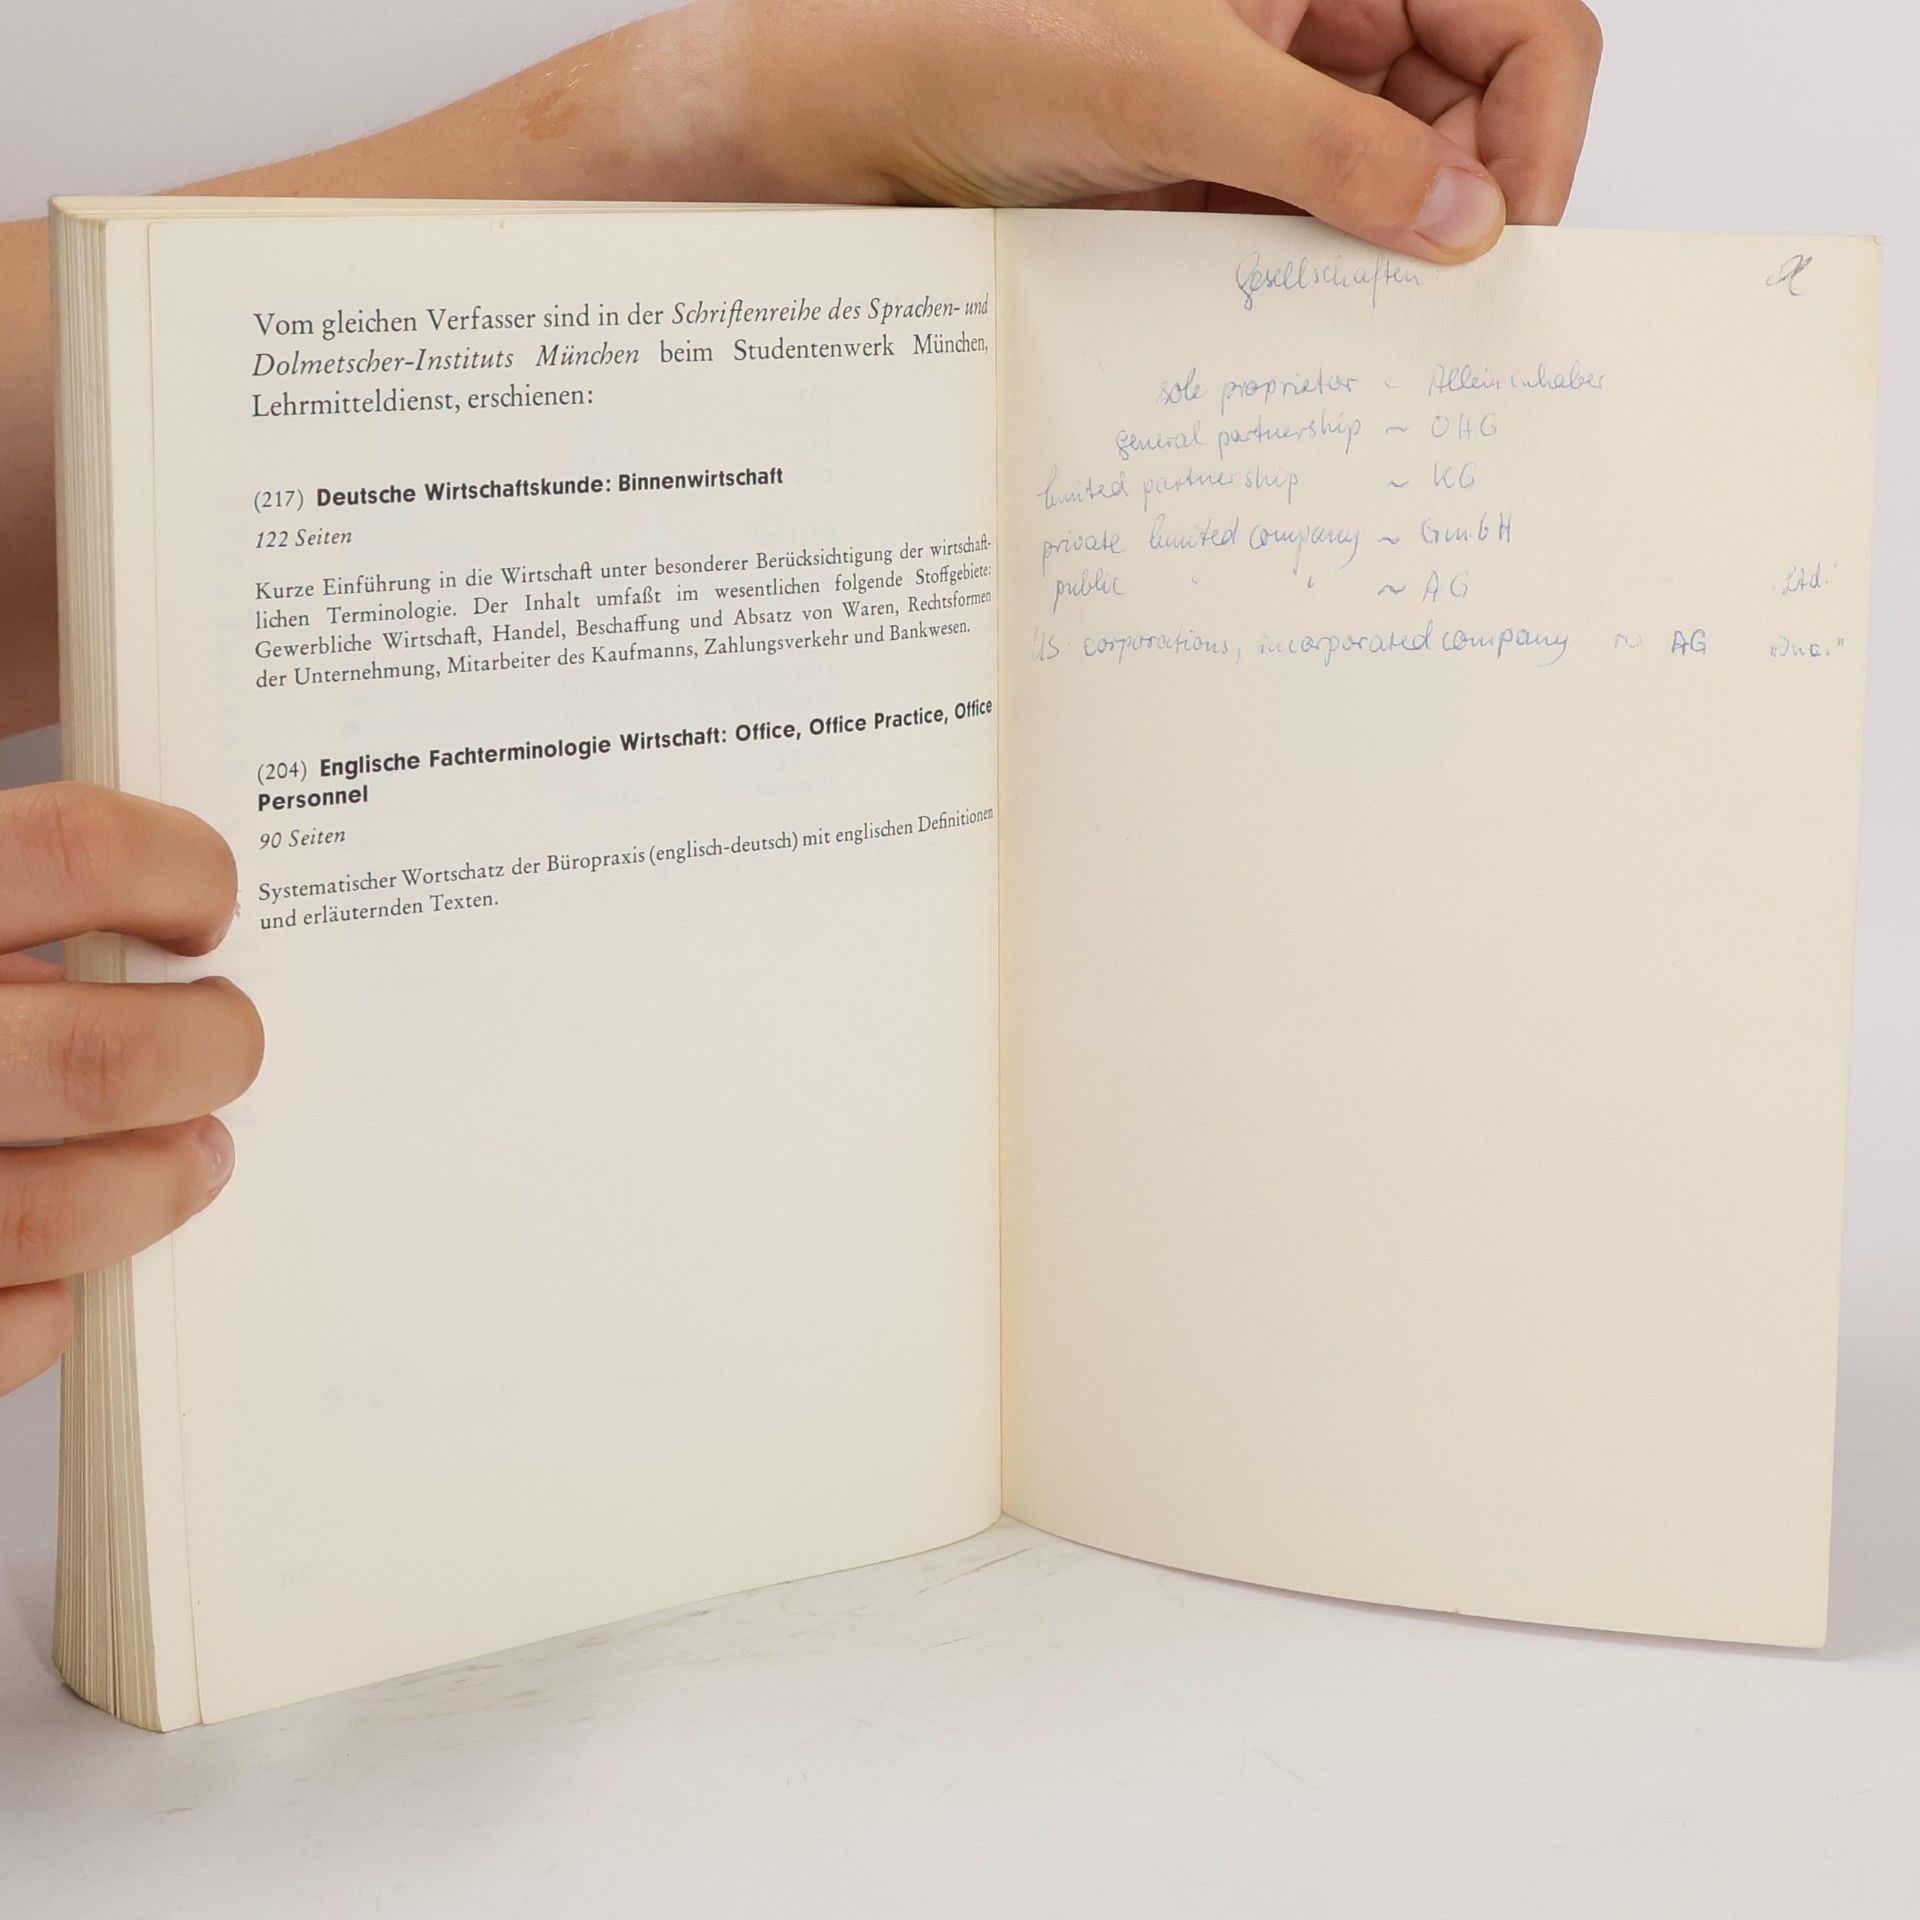 Vom gleichen Verfasser sind in der Schriftenreihe des Sprachen- und
Dolmetscher-Instituts München beim Studentenwerk München,
Lehrmitteldienst, erschienen:
(217) Deutsche Wirtschaftskunde: Binnenwirtschaft
122 Seiten
Kurze Einführung in die Wirtschaft unter besonderer Berücksichtigung der wirtschaft-
lichen Terminologie. Der Inhalt umfaßt im wesentlichen folgende Stoffgebiete:
Gewerbliche Wirtschaft, Handel, Beschaffung und Absatz von Waren, Rechtsformen
der Unternehmung, Mitarbeiter des Kaufmanns, Zahlungsverkehr und Bankwesen.
(204) Englische Fachterminologie Wirtschaft: Office, Office Practice, Office
Personnel
90 Seiten
Systematischer Wortschatz der Büropraxis (englisch-deutsch) mit englischen Definitionen
und erläuternden Texten.
Gesellschaften:
sole proprietor ~ Alleininhaber
general partnership ~ OHG
limited partnership ~ KG
private limited company ~ GmbH
public " " ~ AG „Ltd."
US: corporations, incorporated company ~ AG „Inc."